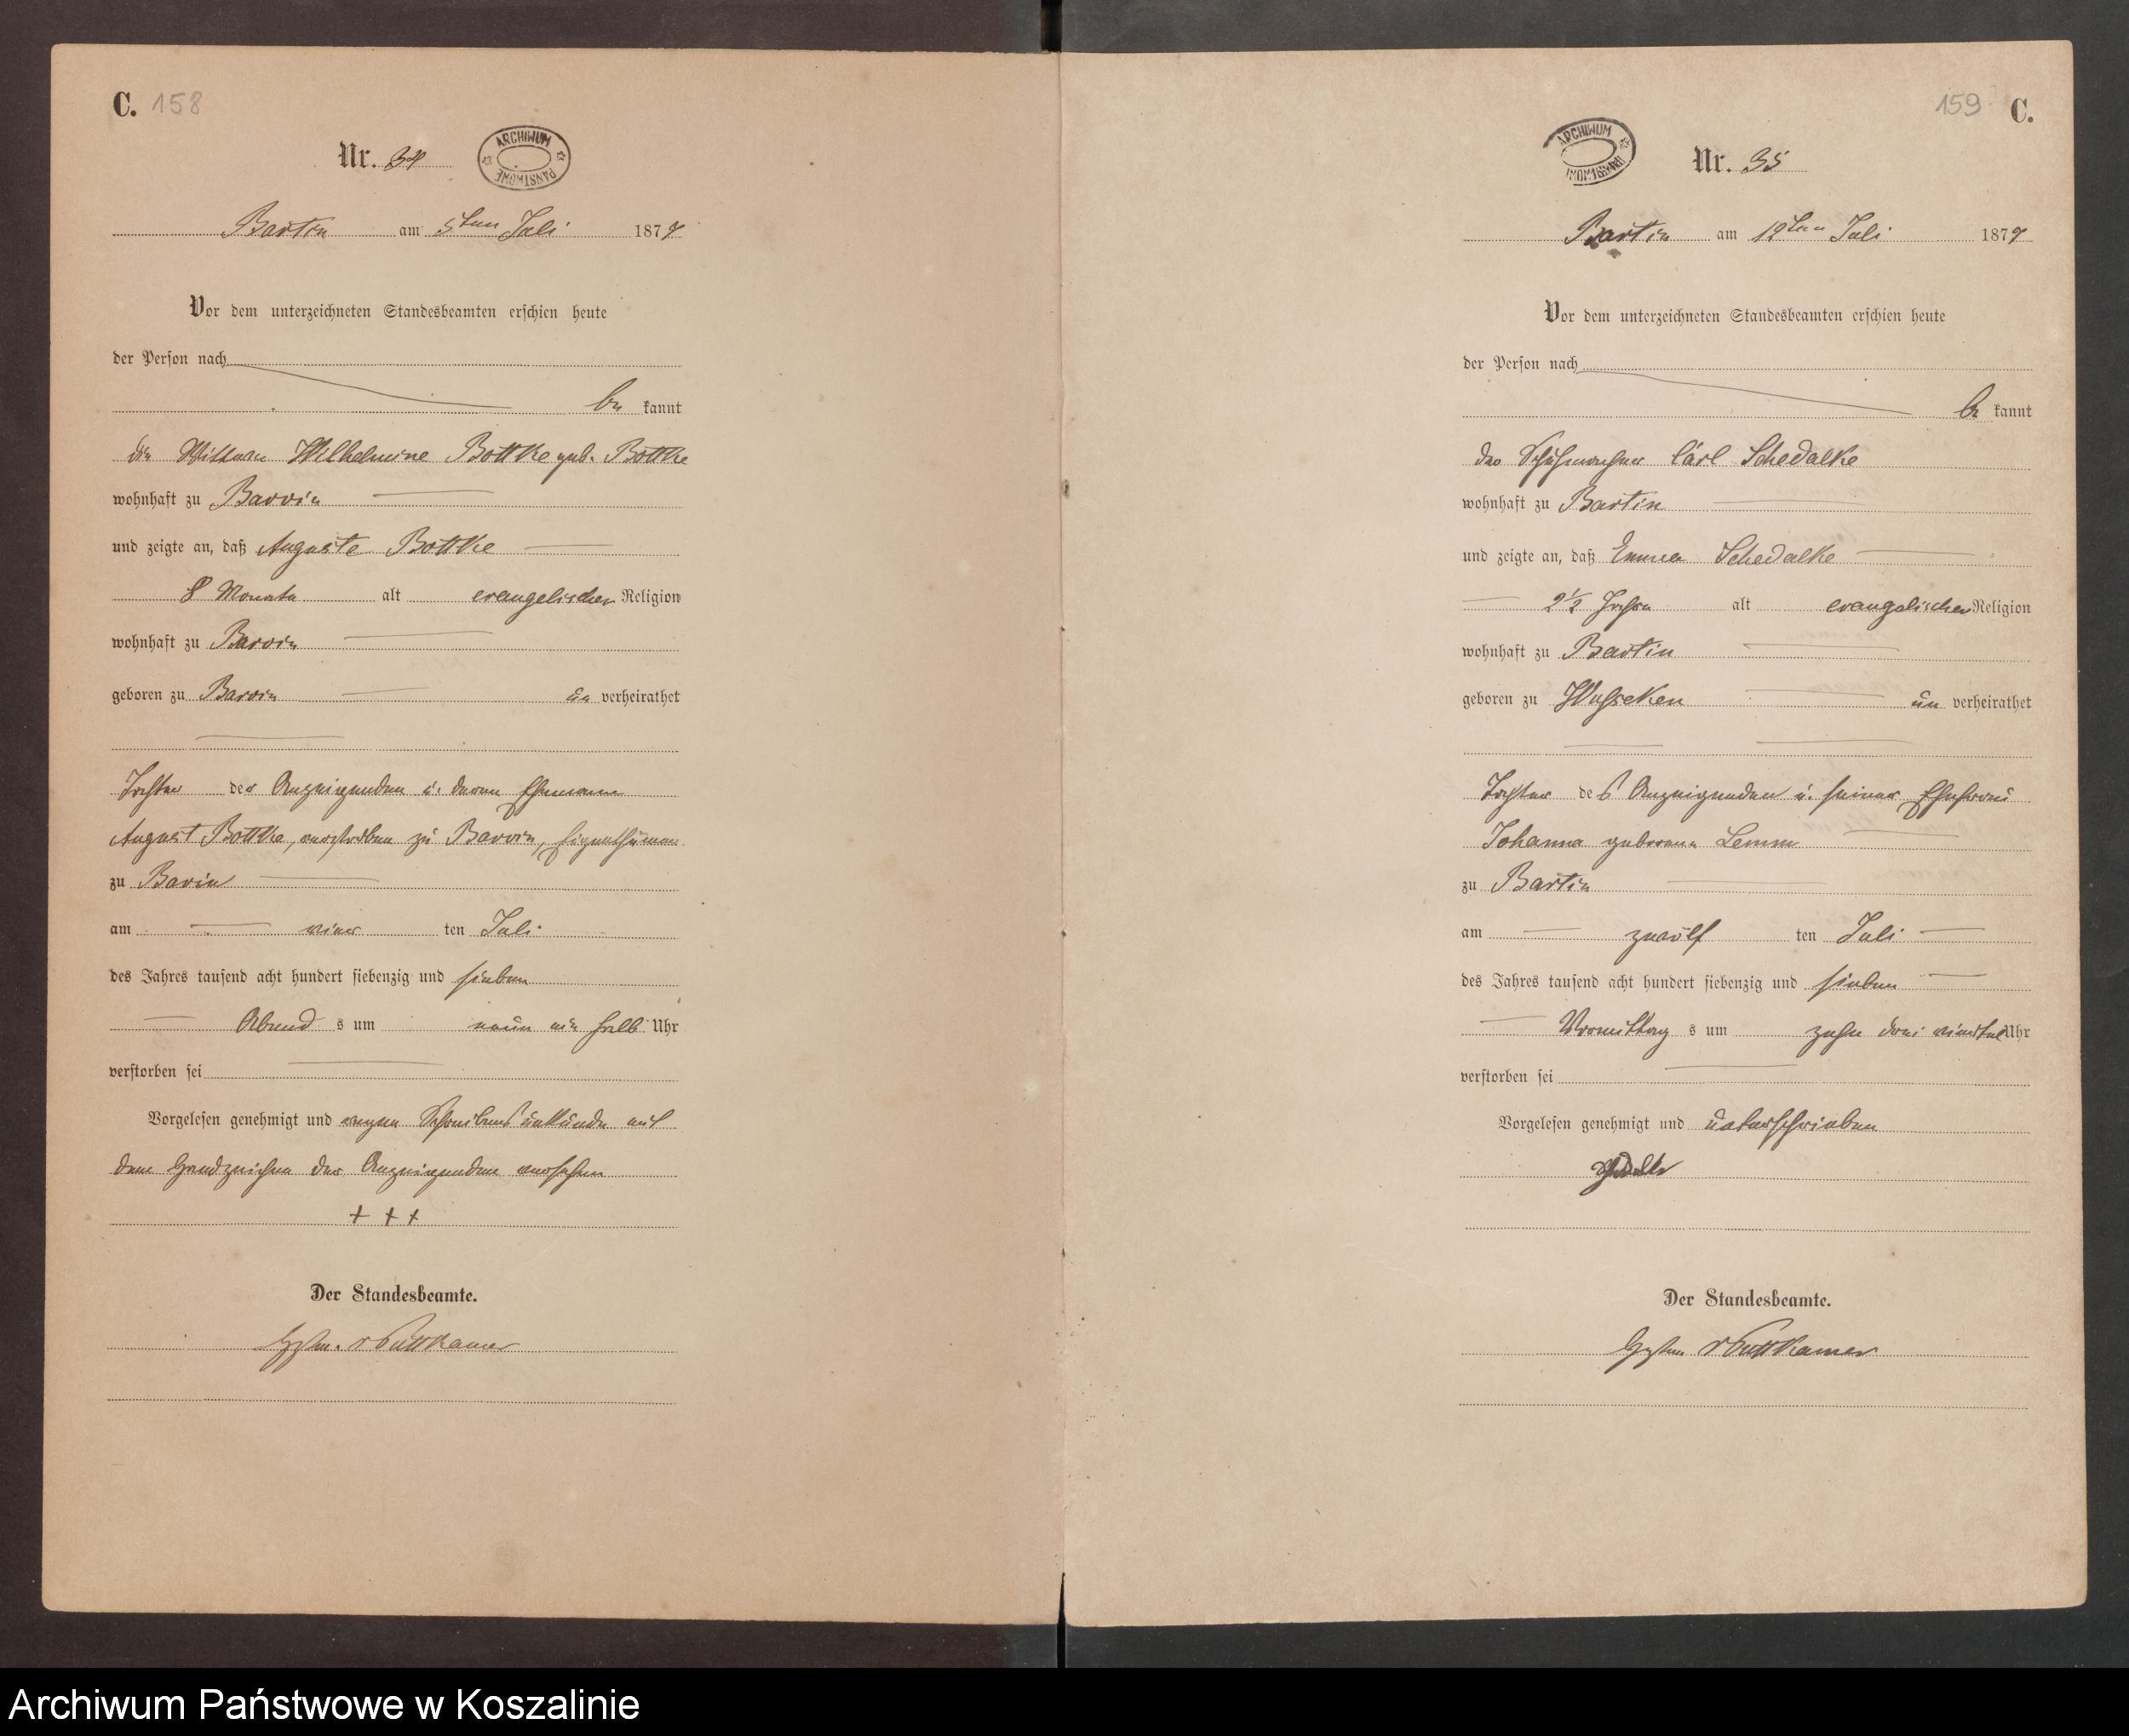 C. 158
ARCHIWUM PAŃSTWOWE
Nr. 34
Bartin am 5ten Juli 1877
Vor dem unterzeichneten Standesbeamten erschien heute
der Person nach
be kannt
die Wittwe Wilhelmine Bottke geb. Bottke
wohnhaft zu Barvin
und zeigte an, daß Auguste Bottke
8 Monate alt evangelischer Religion
wohnhaft zu Barvin
geboren zu Barvin un verheirathet
Tochter der Anzeigenden u. deren Ehemann
August Bottke, verstorben zu Barvin, Eigenthümer
zu Barvin
am vier ten Juli
des Jahres tausend acht hundert siebenzig und sieben
Abend s um neun ein halb Uhr
verstorben sei
Vorgelesen genehmigt und wegen Schreibens unkunde mit
dem Handzeichen der Anzeigenden versehen
+ + +
Der Standesbeamte.
v Puttkamer
159 C.
ARCHIWUM PAŃSTWOWE
Nr. 35
Bartin am 12ten Juli 1877
Vor dem unterzeichneten Standesbeamten erschien heute
der Person nach
be kannt
der Schuhmacher Carl Schedalke
wohnhaft zu Bartin
und zeigte an, daß Emma Schedalke
2 1/2 Jahre alt evangelischer Religion
wohnhaft zu Bartin
geboren zu Wusseken un verheirathet
Tochter des Anzeigenden u. seiner Ehefrau
Johanna geborene Lemm
zu Bartin
am zwölf ten Juli
des Jahres tausend acht hundert siebenzig und sieben
Vormittag s um zehn drei viertel Uhr
verstorben sei
Vorgelesen genehmigt und unterschrieben
Der Standesbeamte.
v Puttkamer
Archiwum Państwowe w Koszalinie